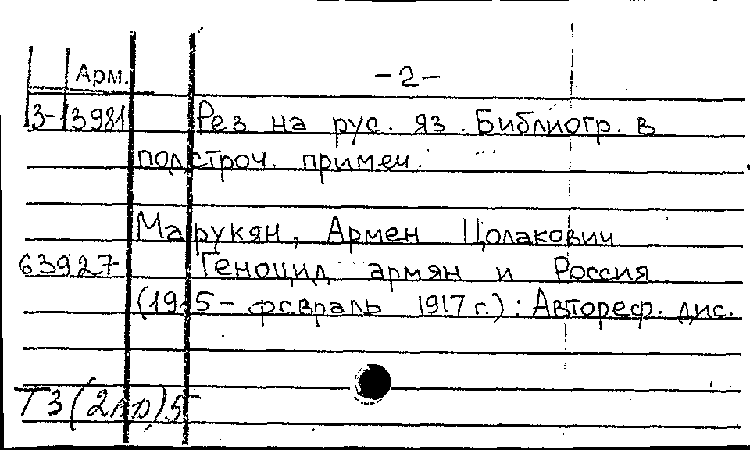 Арм. -2-
3-13981 Рез на рус. яз. Библиогр. в
подстроч. примеч.
Марукян, Армен Цолакович
63927 Геноцид армян и Россия
(1915 - февраль 1917 г.): Автореф. дис.
Т3(2Ар)5